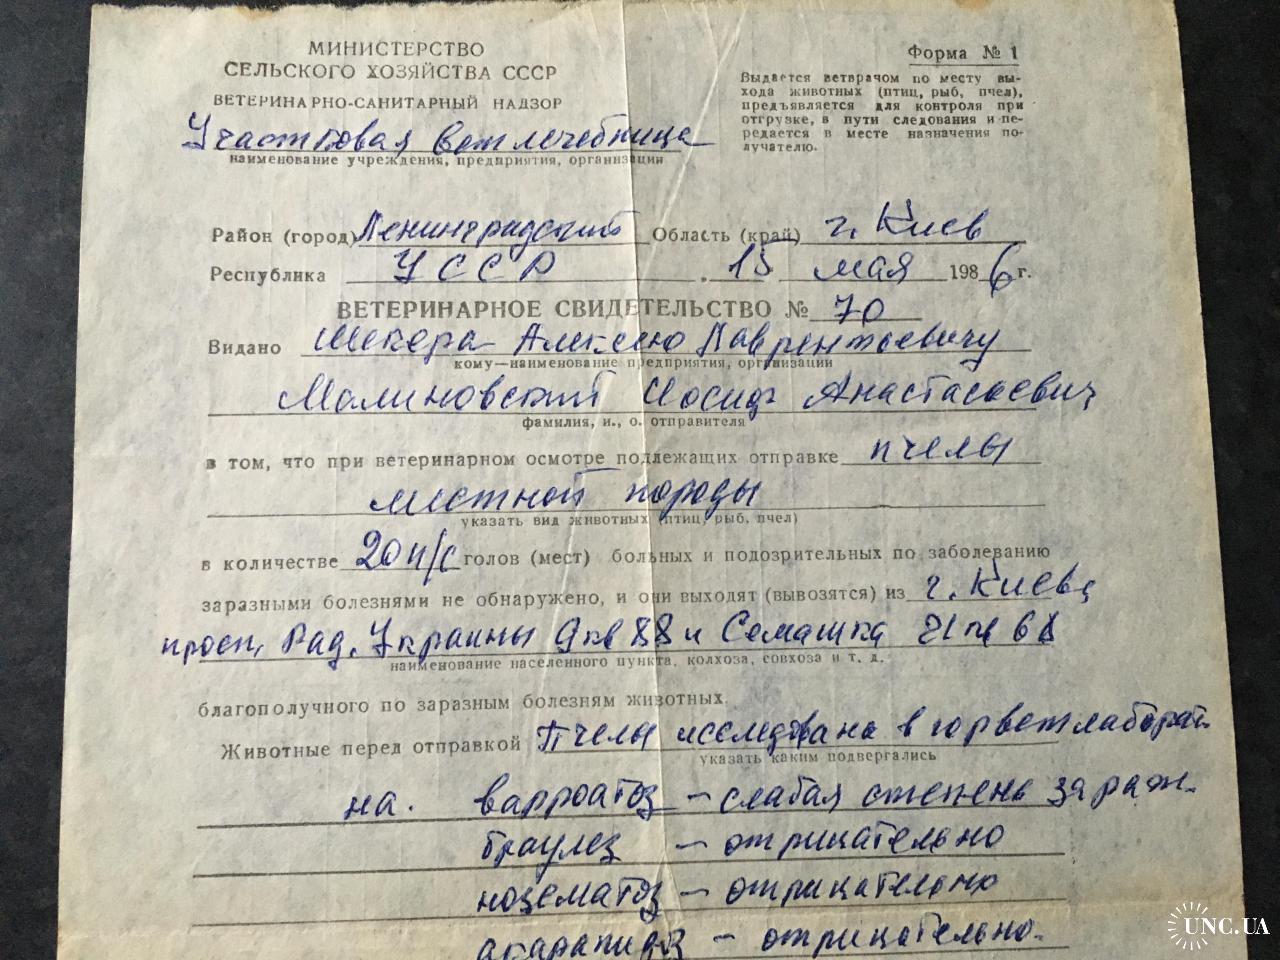 МИНИСТЕРСТВО
СЕЛЬСКОГО ХОЗЯЙСТВА СССР
ВЕТЕРИНАРНО-САНИТАРНЫЙ НАДЗОР
Участковая ветлечебница
наименование учреждения, предприятия, организации
Форма № 1
Выдается ветврачом по месту вы-
хода животных (птиц, рыб, пчел),
предъявляется для контроля при
отгрузке, в пути следования и пе-
редается в месте назначения по-
лучателю.
Район (город) Ленинградский Область (край) г. Киев
Республика УССР „ 15 мая 1986 г.
ВЕТЕРИНАРНОЕ СВИДЕТЕЛЬСТВО № 70
Видано Шекера Алексею Лаврентьевичу
кому—наименование предприятия, организации
Малиновский Иосиф Анастасьевич
фамилия, и., о. отправителя
в том, что при ветеринарном осмотре подлежащих отправке пчелы
местной породы
указать вид животных (птиц, рыб, пчел)
в количестве 20 п/с голов (мест) больных и подозрительных по заболеванию
заразными болезнями не обнаружено, и они выходят (вывозятся) из г. Киева
просп. Рад. Украины 9 кв 88 и Семашка 21
наименование населенного пункта, колхоза, совхоза и т. д.
благополучного по заразным болезням животных.
Животные перед отправкой Пчелы исследована в горветлаборат.
указать каким подвергались
на. варроатоз – слабая степень зараж.
браулез – отрицательно
нозематоз – отрицательно
акарапидоз – отрицательно.
UNC.UA